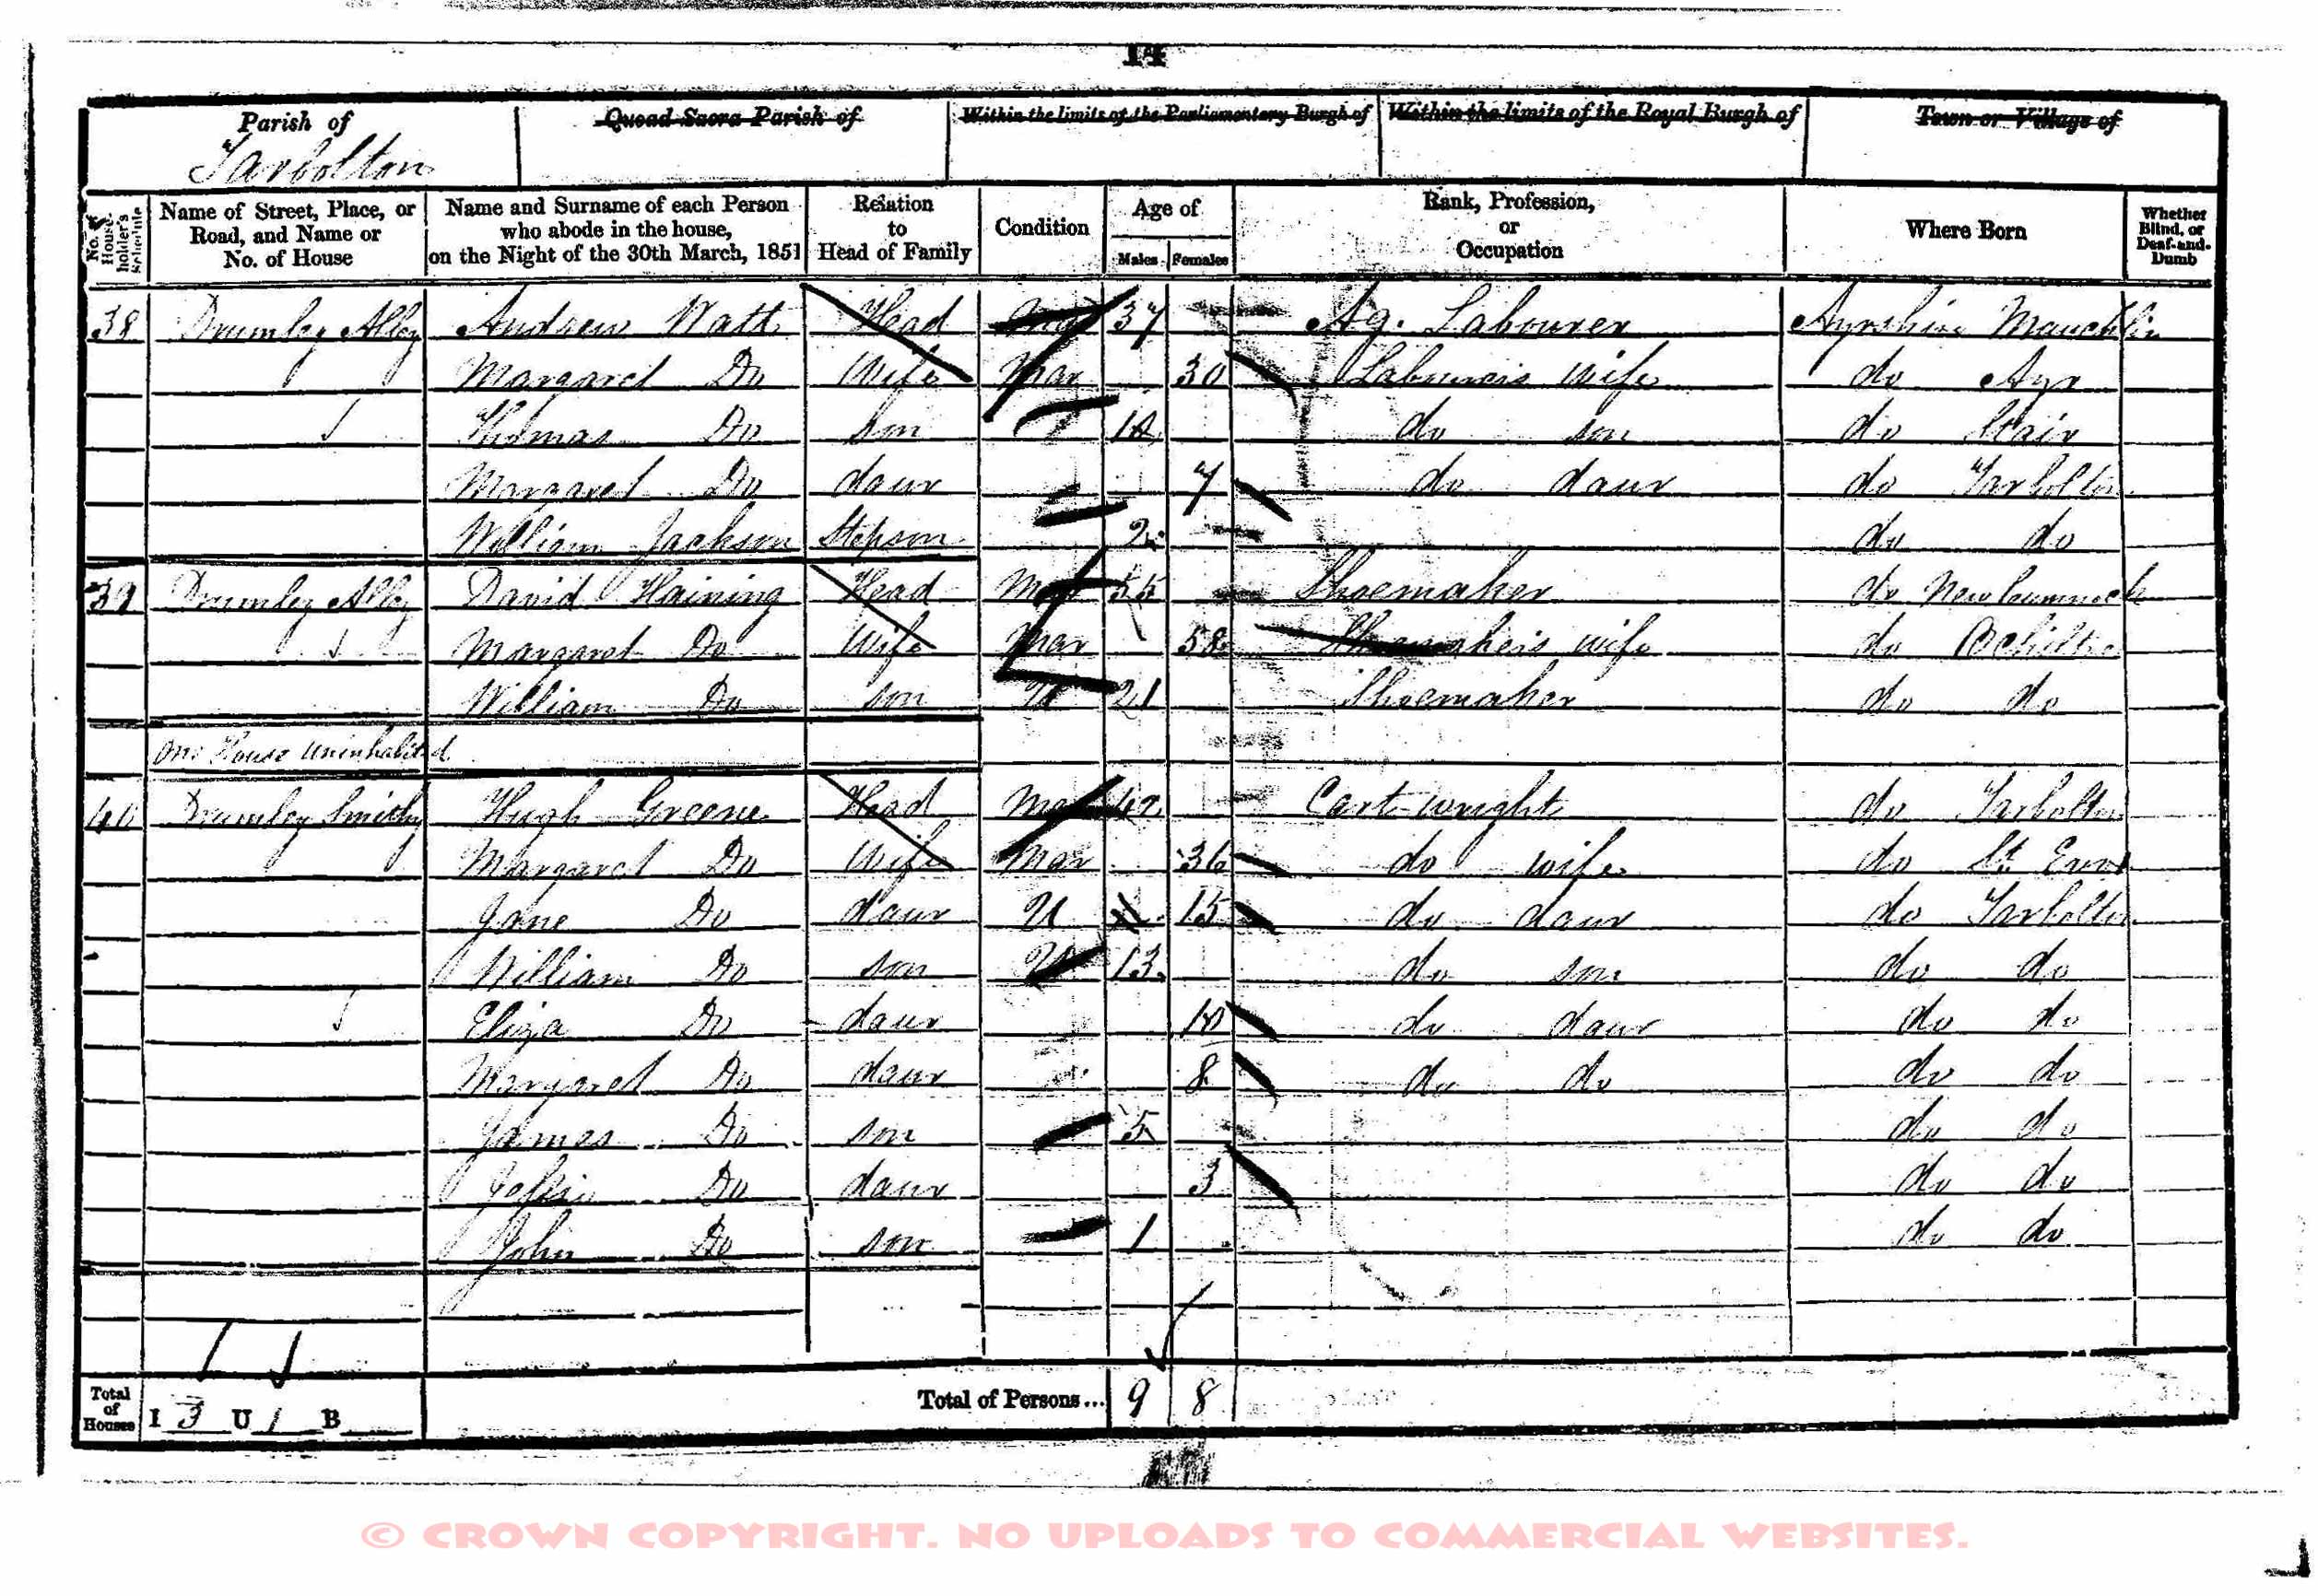 14
Parish of
Tarbolton
Quoad Sacra Parish of
Within the limits of the Parliamentary Burgh of
Within the limits of the Royal Burgh of
Town or Village of
No. of House-holder's Schedule
Name of Street, Place, or Road, and Name or No. of House
Name and Surname of each Person who abode in the house, on the Night of the 30th March, 1851
Relation to Head of Family
Condition
Age of
Males
Females
Rank, Profession, or Occupation
Where Born
Whether Blind, or Deaf-and-Dumb
38 Drumley Andrew Watt Head 37 Ag. Labourer Ayrshire Mauchlin
Margaret Do Wife Mar 30 Labourers wife do Ayr
Thomas Do son do son do Stair
Margaret Do daur 7 do daur do Tarbolton
William Jackson Stepson 2 do do
39 Drumley David Haining Head Mar 55 Shoemaker do New Cumnock
Margaret Do Wife Mar 58 Shoemakers wife do Ochiltree
William Do son U 21 Shoemaker do do
One House uninhabited
40 Drumley Smithy Hugh Greene Head Mar 42 Cart-wright do Tarbolton
Margaret Do Wife Mar 36 do wife do St.
Jane Do daur U 15 do daur do Tarbolton
William Do son U 13 do son do do
Eliza Do daur 10 do daur do do
Margaret Do daur 8 do do do do
James Do son 5 do do
Jessie Do daur 3 do do
John Do son 1 do do
Total of Houses I 3 U 1 B
Total of Persons... 9 8
© CROWN COPYRIGHT. NO UPLOADS TO COMMERCIAL WEBSITES.